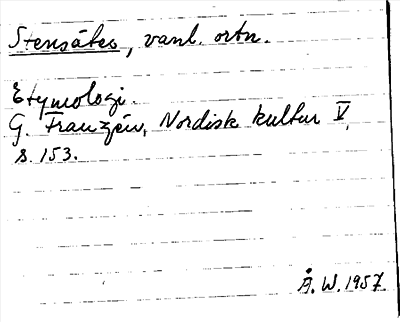 Stensätes, vanl. ortn.
Etymologi.
G. Franzén, Nordisk kultur V,
s. 153.
Å. W. 1957.